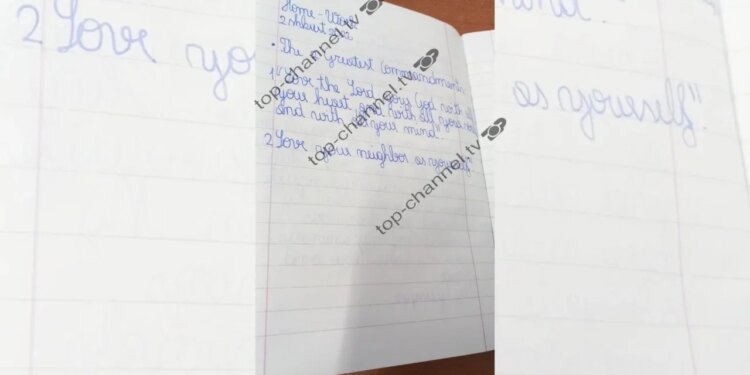 Home - Work
2 shkurt 2022
• The greatest Commandments
1 "Love the Lord your God with all
your heart and with all your soul
and with all your mind.
2 Love your neighbor as yourself".
top-channel.tv
top-channel.tv
top-channel.tv
2 Love yo
mind.
as yourself".